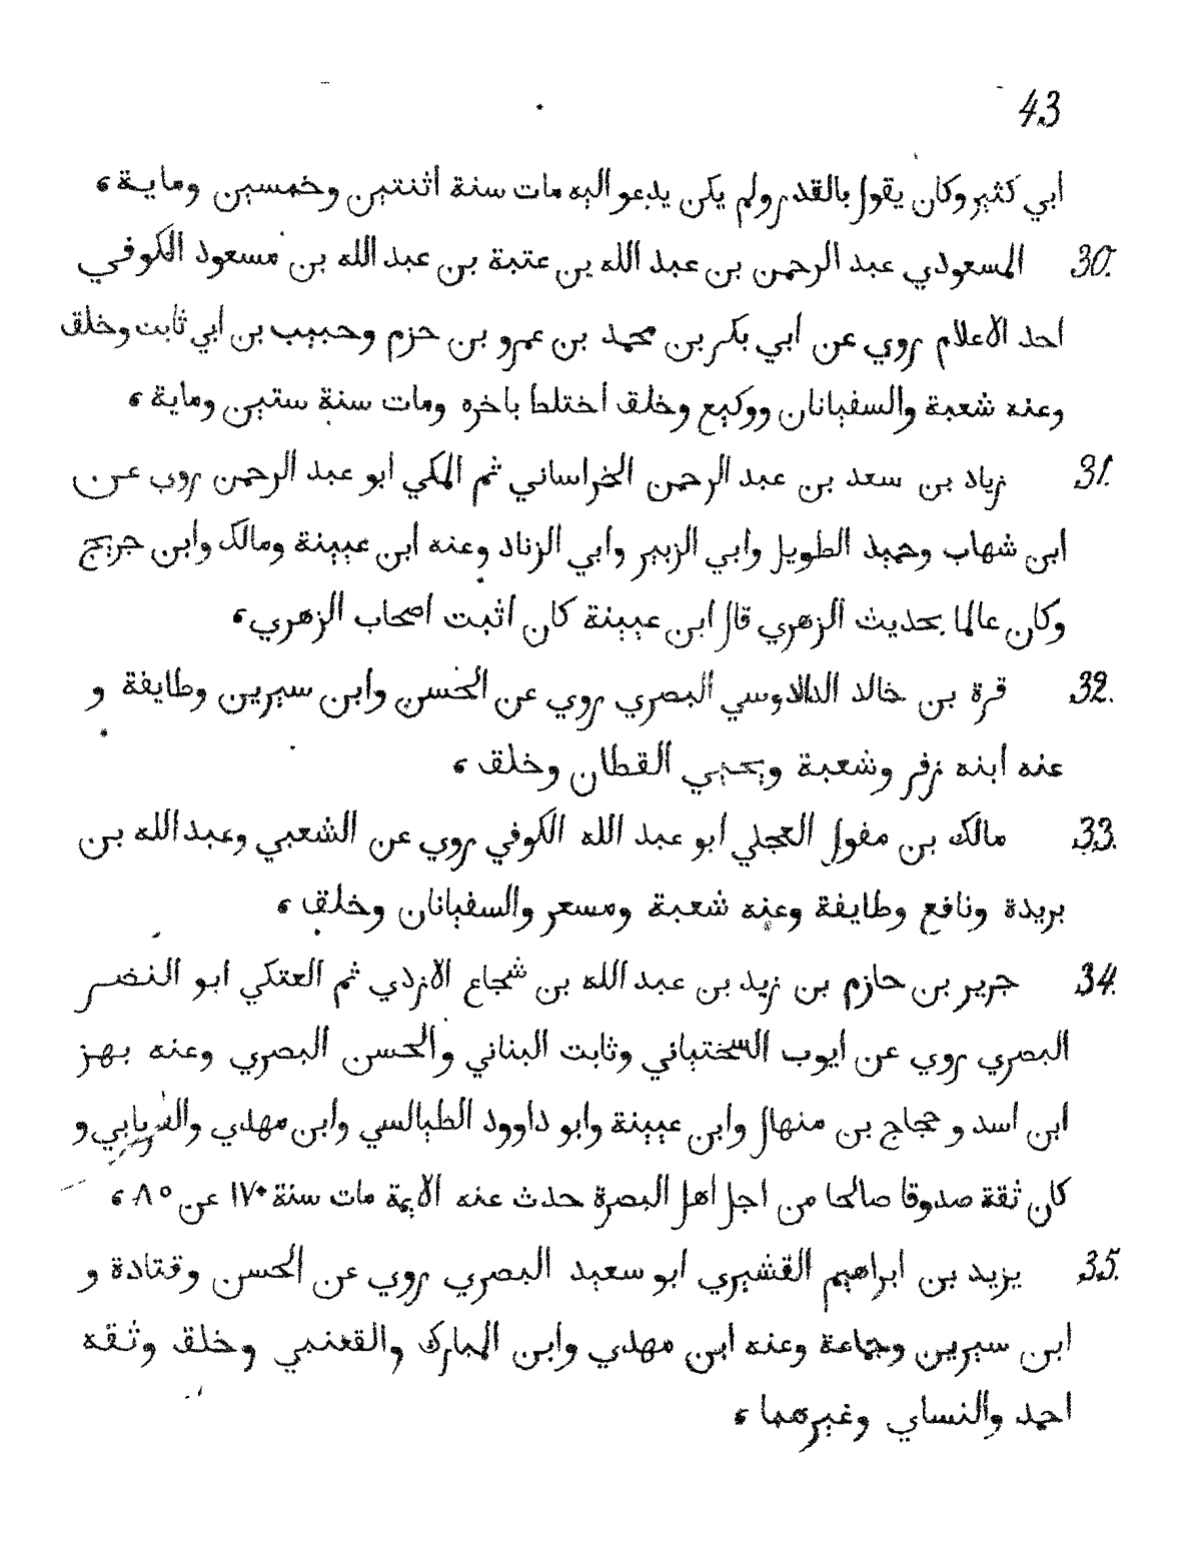 43
ابي كثير وكان يقول بالقدر ولم يكن يدعو اليه مات سنة اثنتين وخمسين وماية،
30. المسعودي عبد الرحمن بن عبد الله بن عتبة بن عبد الله بن مسعود الكوفي
احد الاعلام روي عن ابي بكر بن محمد بن عمرو بن حزم وحبيب بن ابي ثابت وخلق
وعنه شعبة والسفيانان ووكيع وخلق اختلط باخره ومات سنة ستين وماية،
31. زياد بن سعد بن عبد الرحمن الخراساني ثم المكي ابو عبد الرحمن روي عن
ابن شهاب وحميد الطويل وابي الزبير وابي الزناد وعنه ابن عيينة ومالك وابن جريج
وكان عالما بحديث الزهري قال ابن عيينة كان اثبت اصحاب الزهري،
32. قرة بن خالد السدوسي البصري روي عن الحسن وابن سيرين وطايفة و
عنه ابنه زفر وشعبة ويحيي القطان وخلق،
33. مالك بن مفول العجلي ابو عبد الله الكوفي روي عن الشعبي وعبد الله بن
بريدة ونافع وطايفة وعنه شعبة ومسعر والسفيانان وخلق،
34. جرير بن حازم بن زيد بن عبد الله بن شجاع الازدي ثم العتكي ابو النضر
البصري روي عن ايوب السختياني وثابت البناني والحسن البصري وعنه بهز
ابن اسد و حجاج بن منهال وابن عيينة وابو داوود الطيالسي وابن مهدي والفريابي و
كان ثقة صدوقا صالحا من اجل اهل البصرة حدث عنه الايمة مات سنة ١٧٠ عن ٨٥،
35. يزيد بن ابراهيم القشيري ابو سعيد البصري روي عن الحسن وقتادة و
ابن سيرين وجماعة وعنه ابن مهدي وابن المبارك والقعنبي وخلق وثقه
احمد والنساي وغيرهما،